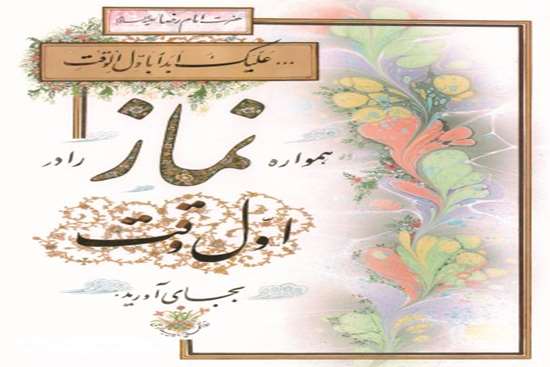 حضرت امام رضا علیه السلام
... علیک ابداً باوّل الوقت
همواره نماز را در
اوّل وقت
بجای آورید.